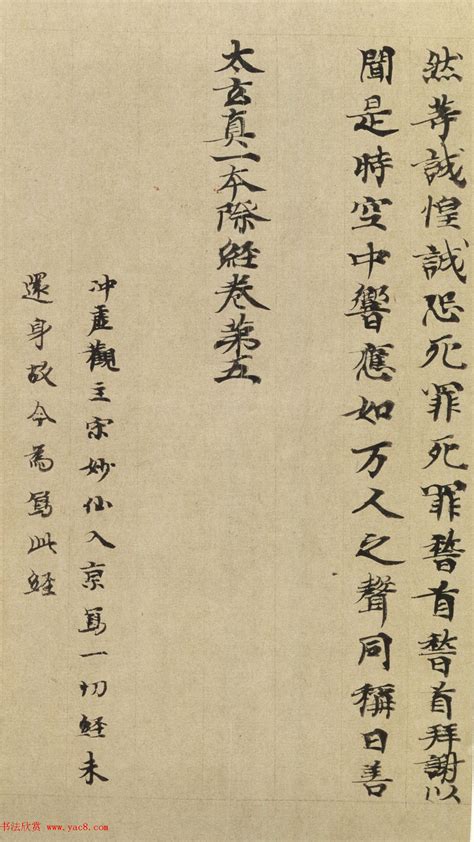 然等誠惶誠恐死罪死罪䭫首䭫首拜謝以
聞是時空中響應如万人之聲同稱曰善
太玄真一本際經卷第五
冲虛觀主宋妙仙入京寫一切經未
還身故今為寫此經
书法欣赏 www.yac8.com